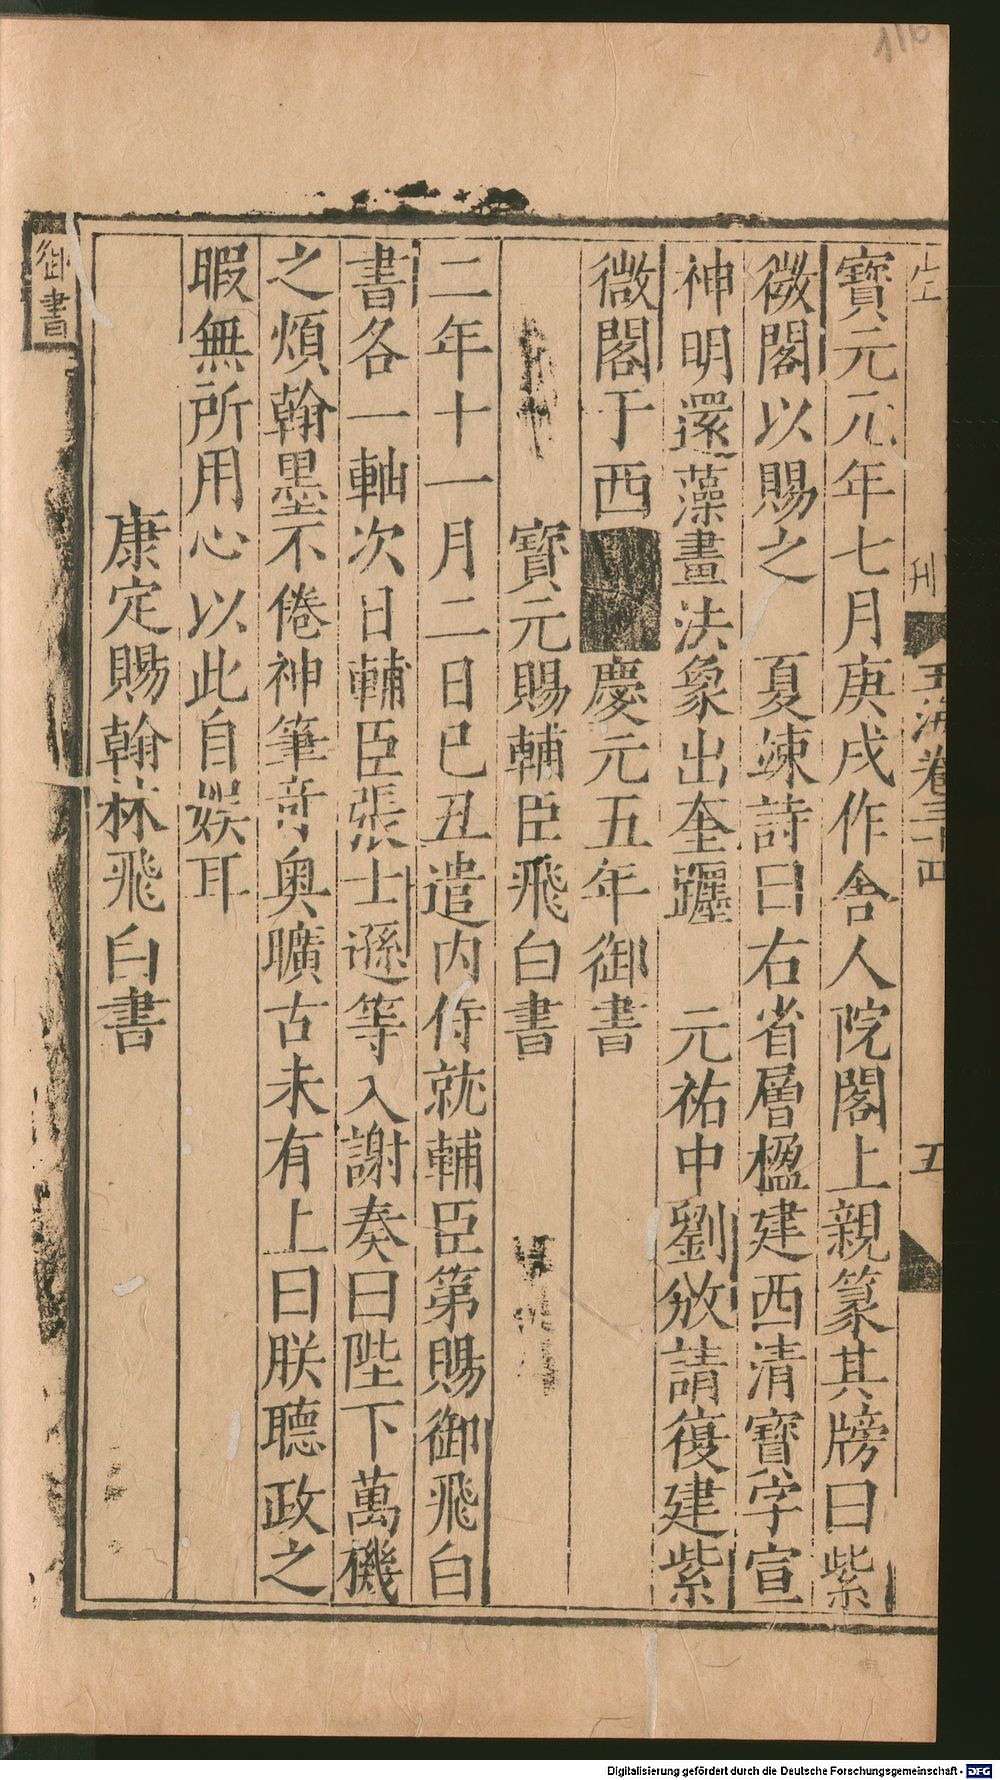 116
玉海卷三十四
五
寶元元年七月庚戌作舍人院閣上親篆其牓曰紫
微閣以賜之　夏竦詩曰右省層楹建西清寶字宣
神明還藻畫法象出奎躔　元祐中劉攽請復建紫
微閣于西　慶元五年御書
寶元賜輔臣飛白書
二年十一月二日已丑遣内侍就輔臣第賜御飛白
書各一軸次日輔臣張士遜等入謝奏曰陛下萬機
之煩翰墨不倦神筆竒奥曠古未有上曰朕聽政之
暇無所用心以此自娱耳
康定賜翰林飛白書
御書
Digitalisierung gefördert durch die Deutsche Forschungsgemeinschaft - DFG